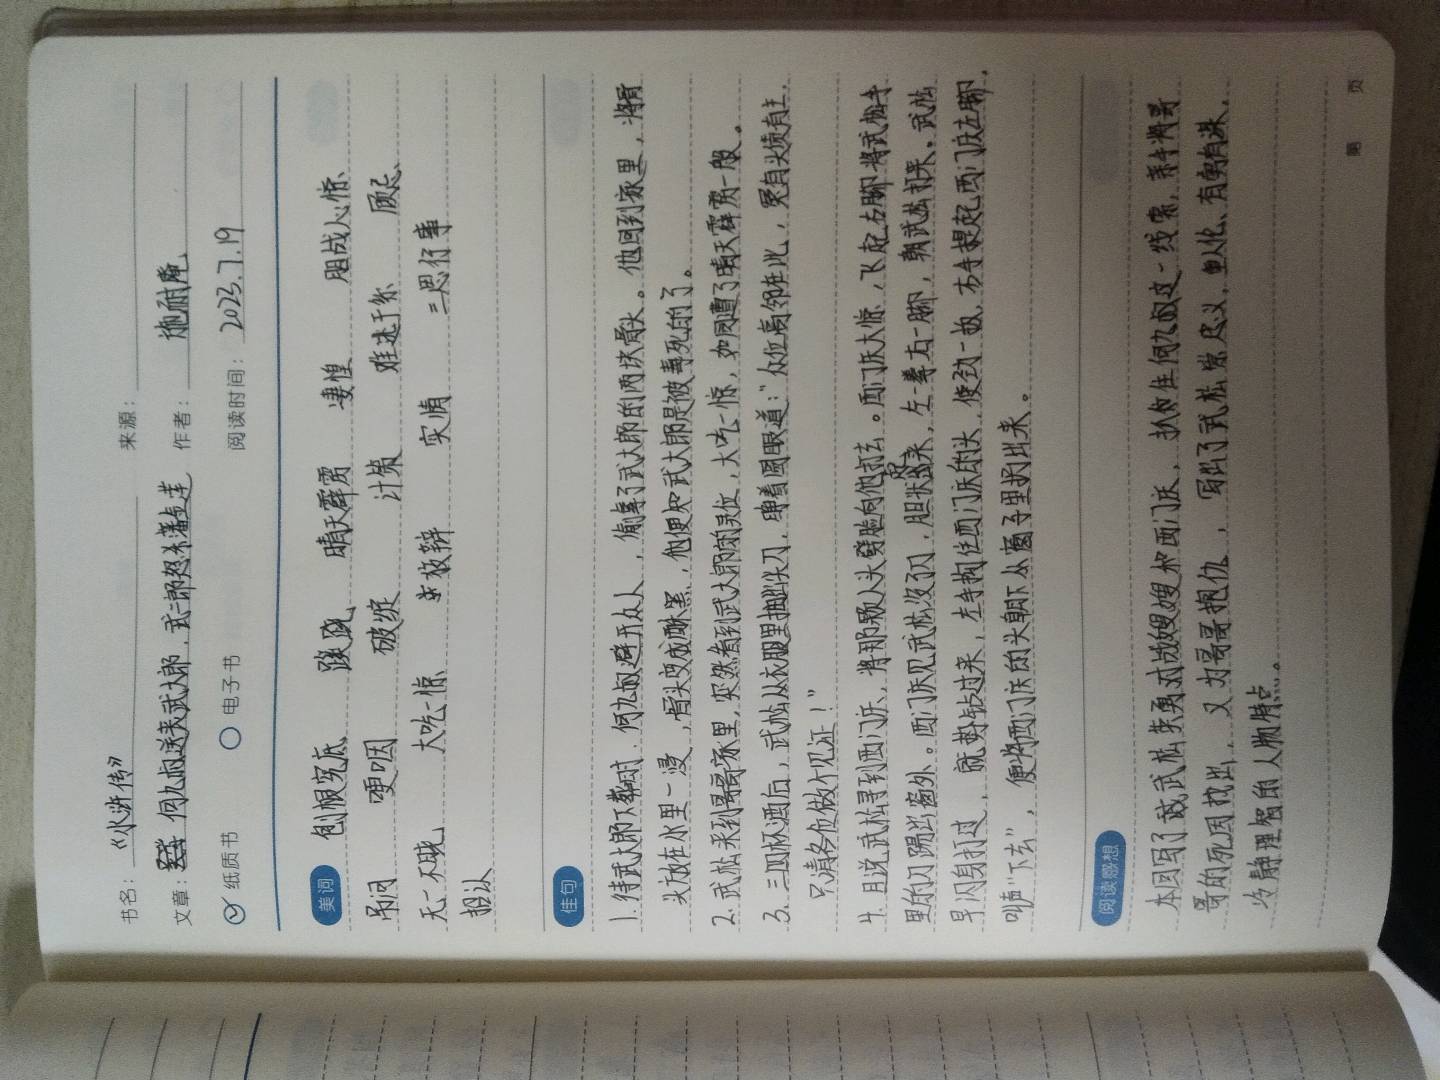 书名：《水浒传》
来源：
文章：何九叔送丧武大郎，武二郎怒杀潘金莲
作者：施耐庵
纸质书
电子书
阅读时间：2023.7.19
美词
刨根究底 蹊跷 晴天霹雳 凄惶 胆战心惊
吊问 哽咽 破绽 计策 难逃干系 顾忌
无一不晓 大吃一惊 求救辩 实情 三思行事
招认
佳句
1.待武大郎下葬时，何九叔避开众人，偷拿了武大郎的两块骨头。他回到家里，将骨
头放在水里一浸，骨头变成酥黑，他便知武大郎是被毒死的了。
2.武松来到哥哥家里，突然看到武大郎的灵位，大吃一惊，如同遭了晴天霹雳一般。
3.三四杯酒后，武松从衣服里抽出尖刀，睁着圆眼道：“众位高邻在此，冤有头债有主，
只请各位做个见证！”
4.且说武松寻到西门庆，将那颗人头劈脸向他打去。西门庆大惊，飞起右脚将武松手
里的刀踢出窗外。西门庆见武松没刀，胆壮起来，左一拳右一脚，朝武松打来。武松
早闪身打过，就势钻过来，左手揪住西门庆的头，使劲一扳，右手提起西门庆左脚，
叫声“下去”，便将西门庆的头朝下从窗子里扔出来。
阅读感想
本回写了武松失勇对战嫂嫂和西门庆，抓住何九叔这一线索，亲手将哥
哥的死因找出，又为哥哥报仇，写出了武松崇尽义，重人伦、有勇有谋，
冷静理智的人物特点。
第 页